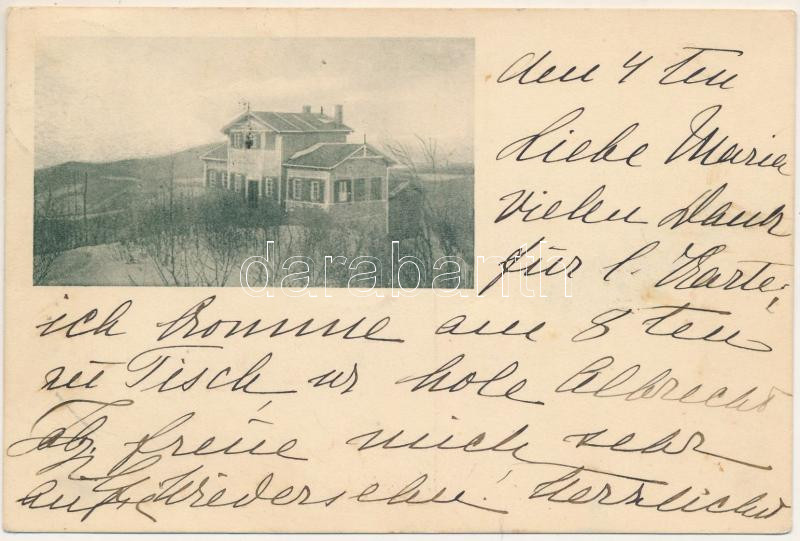 den 4 ten
Liebe Marie
vielen Dank
für l. Karte;
ich komme am 8 ten
zu Tisch, u hole Albrecht
freue mich sehr
auf Wiedersehen! Herzlichst
darabanth